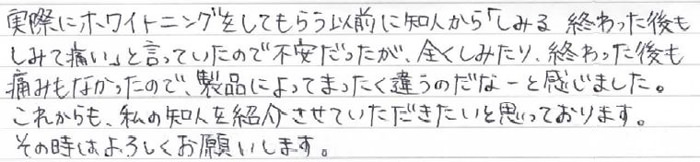 実際にホワイトニングをしてもらう以前に知人から「しみる 終わった後も
しみて痛い」と言っていたので不安だったが、全くしみたり、終わった後も
痛みもなかったので、製品によってまったく違うのだなーと感じました。
これからも、私の知人を紹介させていただきたいと思っております。
その時はよろしくお願いします。